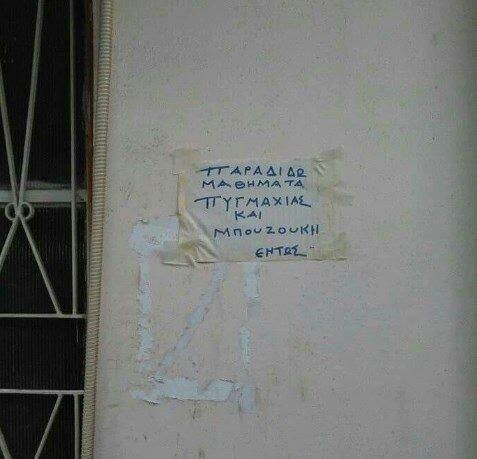 ΠΑΡΑΔΙΔΩ
ΜΑΘΗΜΑΤΑ
ΠΥΓΜΑΧΙΑΣ
ΚΑΙ
ΜΠΟΥΖΟΥΚΗ
ΕΝΤΩΣ